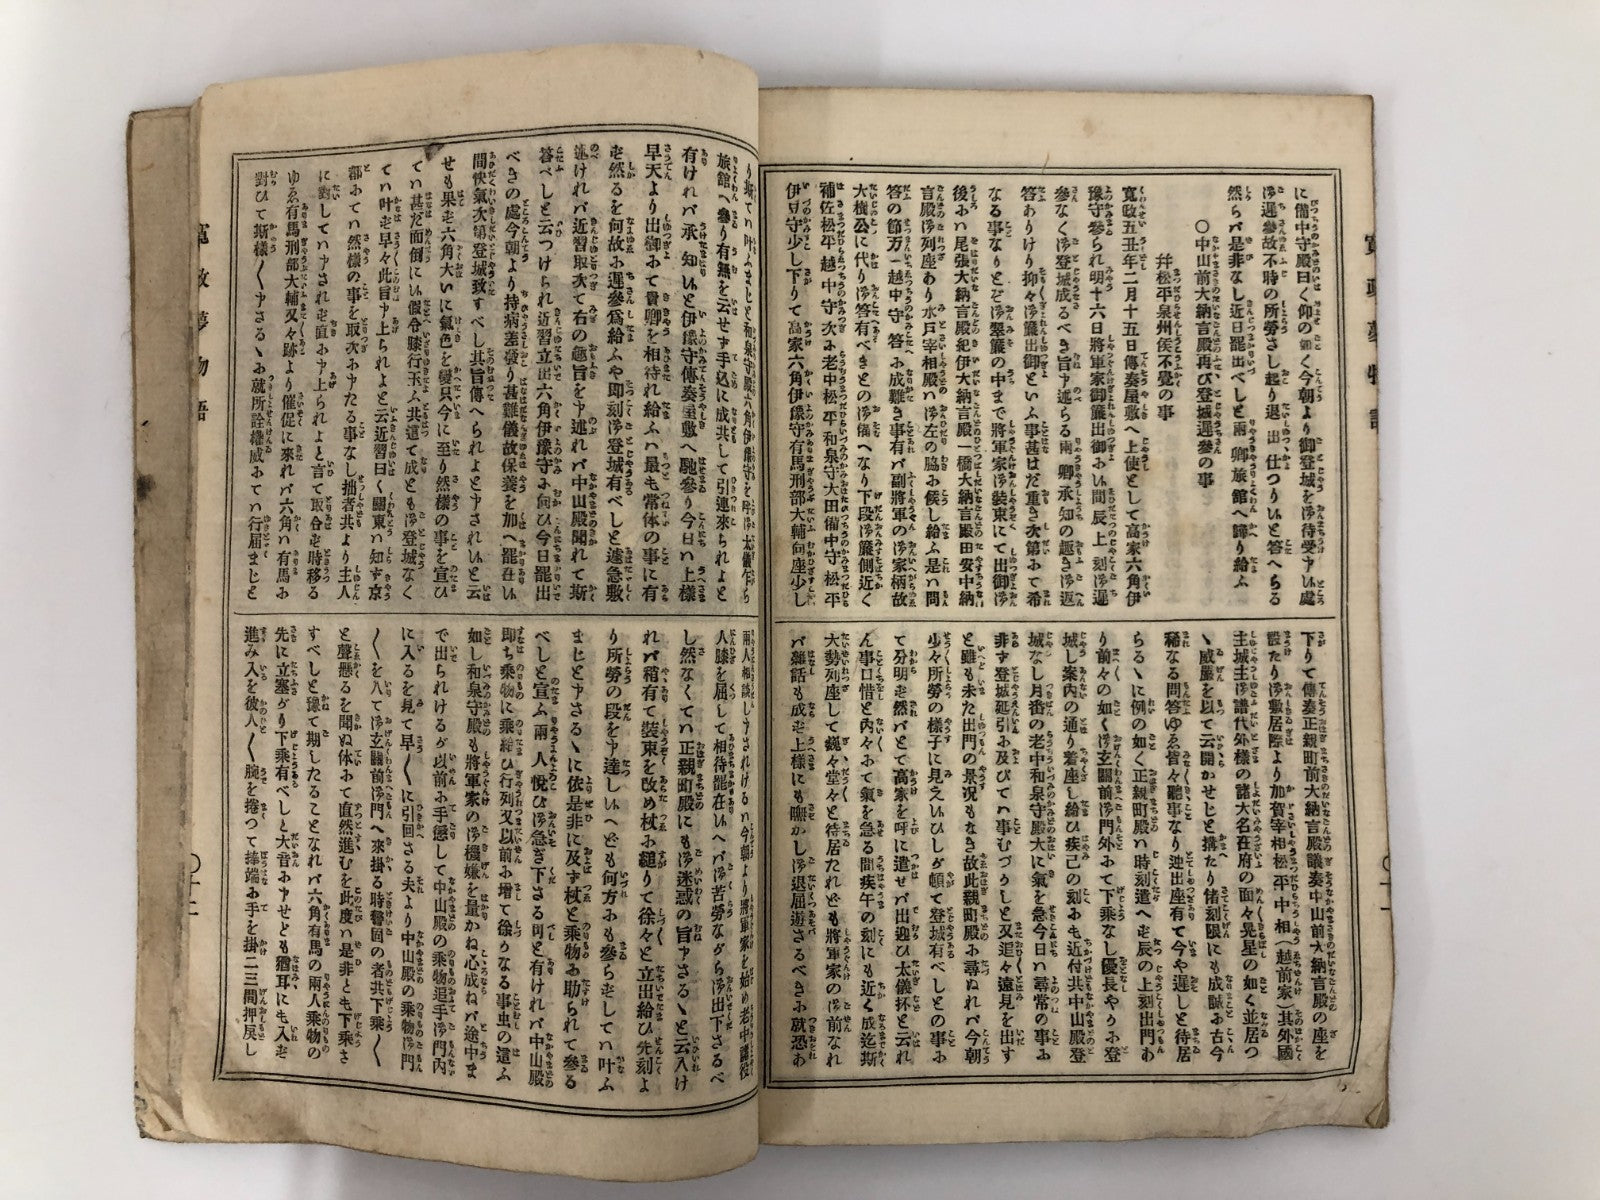 寛政夢物語
に備中守殿曰く仰の如く今朝より御登城を御待受申い處
御遲參故不時の所勞さし起り退出仕つりいと答へらる
然らバ是非なし近日罷出べしと兩卿旅館へ歸り給ふ
〇中山前大納言殿再び登城遲參の事
并松平泉州侯不覺の事
寛政五丑年二月十五日傳奏屋敷へ上使として高家六角伊
豫守參られ明十六日將軍家御簾出御あい間辰上刻御遲
參なく御登城成るべき旨申述らる兩卿承知の趣き御返
答ありけり抑々御簾出御といふ事甚はだ重き次第あて希
なる事なりとぞ御翠簾の中まで將軍家御裝束にて出御御
後ふハ尾張大納言殿紀伊大納言殿一橋大納言殿田安中納
言殿御列座あり水戸宰相殿ハ御左の脇ふ候し給ふ是ハ問
答の節万一越中守答ふ成難き事有バ副將軍の御家柄故
大樹公に代り御答有べきとの御備へなり下段御簾側近く
補佐松平越中守次ふ老中松平和泉守大田備中守松平
伊豆守少し下りて高家六角伊豫守有馬刑部大輔向座少し
下りて傳奏正親町前大納言殿議奏中山前大納言殿の座を
設たり御敷居際より加賀宰相松平中相(越前家)其外國
主城主御譜代外様の諸大名在府の面々晃星の如く並居つ
ゝ威嚴を以て云開かせじと搆たり偖刻限にも成ふ古今
稀なる問答ゆゑ皆々聽事なり追出座有て今や遲しと待居
らるゝに例の如く正親町殿ハ時刻違へぞ辰の上刻出門あ
り前々の如く御玄關前御門外あて下乘なし優長やうふ登
城し案内の通り着座し給ひ疾己の刻ふも近付共中山殿登
城なし月番の老中和泉守殿大に氣を急今日ハ尋常の事ふ
非ず登城延引ふ及びてハ事むづうしと又追々遠見を出す
と雖も未た出門の景况もなき故此親町殿ふ尋ぬれバ今朝
少々所勞の樣子に見えいひしが頓て登城有べしとの事ふ
て分明ぞ然バとて高家を呼に遣せバ出迎ひ太儀抔と云れ
ん事口惜と内々ふて氣を急る間疾午の刻にも近く成迄斯
大勢列座して巍々堂々と待居たれども將軍家の御前なれ
バ雜話も成ぞ上様にも嘸かし御退屈遊さるべきふ就恐あ
旅館へ參り有無を云せず手込に成共して引連來られよと
有けれバ承知いと伊豫守傳奏屋敷へ馳參り今日ハ上様
早天より出御ふて貴卿を相待れ給ふハ最も常体の事に有
ぞ然るを何故ふ遲參爲給ふや即刻御登城有べしと遽急敷
述けれバ近習取次て右の趣旨を申述れバ中山殿聞れて斯
答べしと云つけられ近習立出六角伊豫守ふ向ひ今日罷出
べきの處今朝より持病差發り甚難儀故保養を加へ罷在い
間快氣次第登城致すべし其旨傳へられよと申されいと云
せも果ぞ六角大いに氣色を變只今に至り然様の事を宣ひ
てハ甚だ面倒にい假令膝行玉ふ共這て成とも御登城なく
てハ叶ぞ早々此旨申上られよと云近習曰く關東ハ知ず京
都ふてハ然様の事を取次ふ申たる事なし拙者共より主人
に對してハ申されぞ直ふ申上られよと言て取合ぞ時移る
ゆゑ有馬刑部大輔又々跡より催促に來れバ六角ハ有馬ふ
對ひて斯様〳〵申さるゝふ就所詮權威ふてハ行屆まじと
兩人相談し申されけるハ今朝より將軍家を始め老中諸役
人膝を屈して相待罷在いへバ御苦勞ながら御出下さるべ
し然なくてハ正親町殿にも御迷惑の旨申さるゝと云入け
れバ稍有て裝束を改め杖ふ縋りて徐々と立出給ひ先刻よ
り所勞の段を申達しいへども何方ふも參らぞしてハ叶ふ
まじと申さるゝに依是非に及ず杖と乘物ふ助られて參る
べしと宣ふ兩人悦び御急ぎ下さる可と有けれバ中山殿
即ち乘物に乘給ひ行列又以前ふ增て徐うなる事虫の這ふ
如し和泉守殿も將軍家の御機嫌を量かね心成ねバ途中ま
で出られけるが以前ふ手懲して中山殿の乘物追手御門内
に入るを見て早〳〵に引回さる夫より中山殿の乘物御門
〳〵を入て御玄關前御門へ來掛る時警固の者共下乘〳〵
と聲懸るを聞ぬ体ふて直然進むを此度ハ是非とも下乘さ
すべしと豫て期したることなれバ六角有馬の兩人乘物の
先に立塞がり下乘有べしと大音ふ申せども猶耳にも入ぞ
進み入を彼人〳〵腕を捲つて捧端ふ手を掛二三間押戻し
寛政夢物語
〇十二